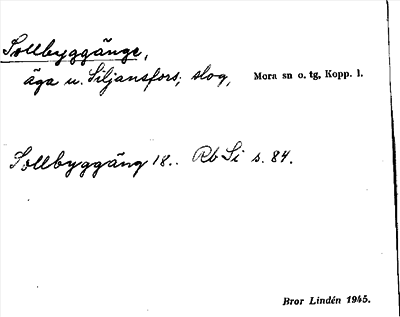 Sollbyggänge,
äga u. Siljansfors; slog, Mora sn o. tg, Kopp. l.
Sollbyggäng 18.. Rb Si s. 84.
Bror Lindén 1945.